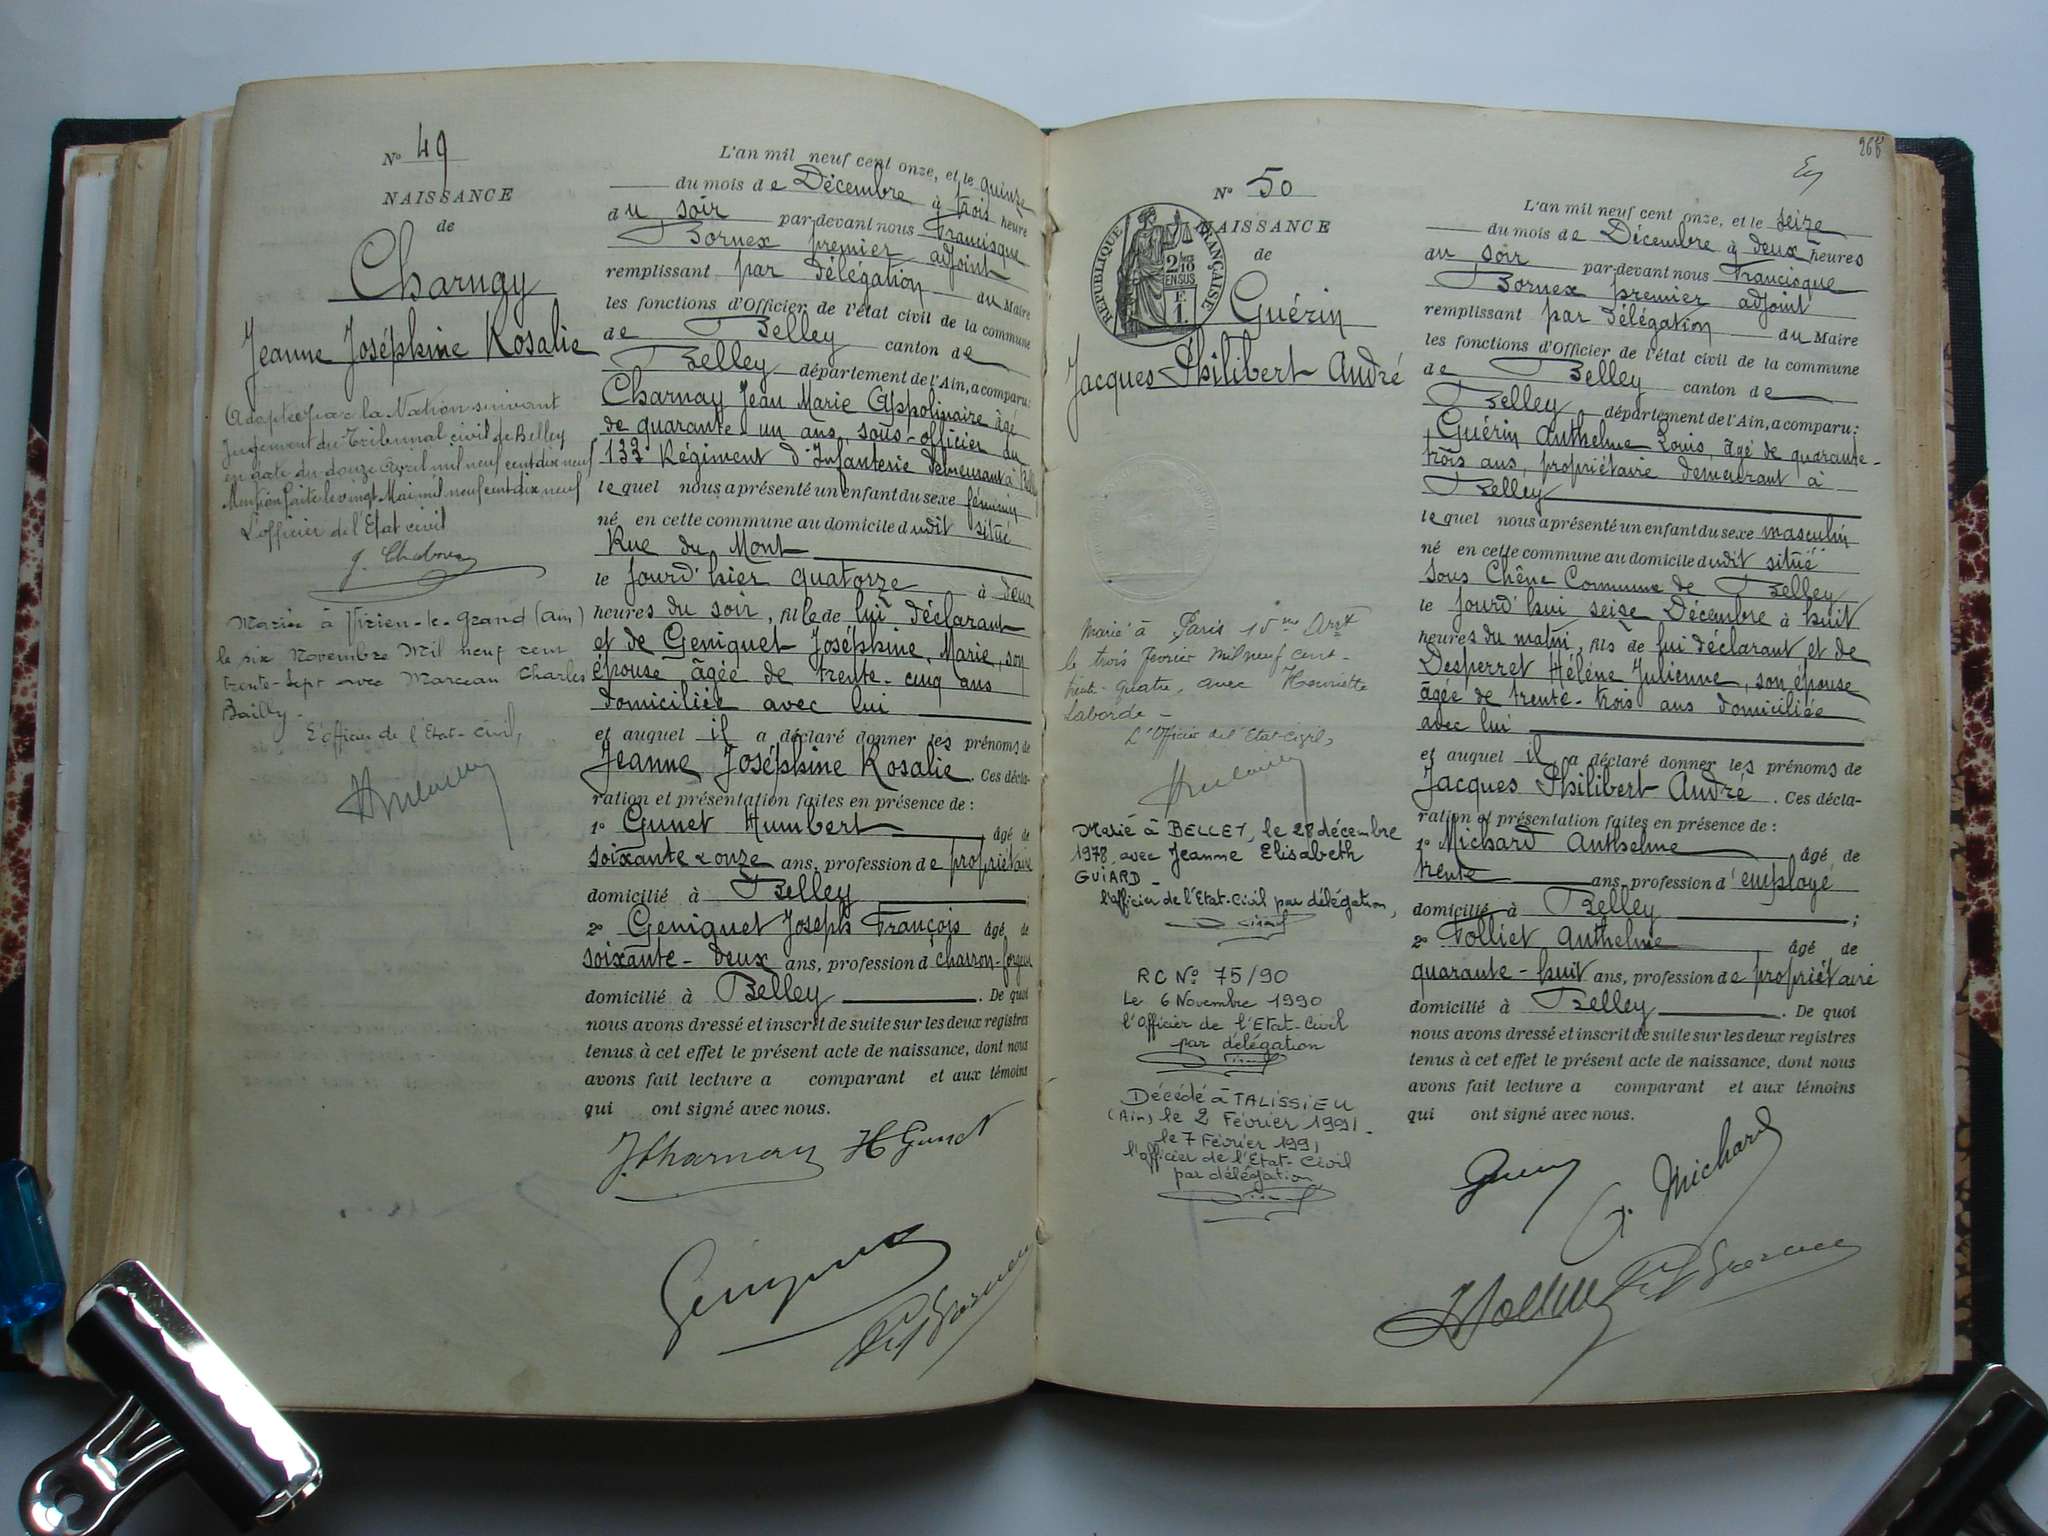 Nº 49
NAISSANCE
de
Charnay
Jeanne Joséphine Rosalie
Adoptée par la Nation suivant
Jugement du Tribunal civil de Belley
en date du douze Avril mil neuf cent dix neuf
Mention faite le vingt Mai mil neuf cent dix neuf
L'officier de l'Etat civil
Mariée à Virieu-le-Grand (Ain)
le six Novembre Mil neuf cent
trente-sept avec Marceau Charles
Bailly.
L'officier de l'Etat-civil,
L'an mil neuf cent onze, et le quinze
du mois de Décembre à trois heure
du soir par-devant nous Francisque
Bornex premier adjoint
remplissant par délégation du Maire
les fonctions d'Officier de l'état civil de la commune
de Belley canton de
Belley département de l'Ain, a comparu:
Charnay Jean Marie Appolinaire âgé
de quarante un ans, sous-officier au
133e Régiment d'Infanterie demeurant à Belley
lequel nous a présenté un enfant du sexe féminin
né en cette commune au domicile dudit situé
Rue du Mont
le jourd'hier quatorze à deux
heures du soir, fille de lui déclarant
et de Geniquet Joséphine, Marie, son
épouse âgée de trente-cinq ans
domiciliée avec lui
et auquel il a déclaré donner les prénoms de
Jeanne Joséphine Rosalie. Ces décla-
ration et présentation faites en présence de :
1º Gunet Humbert âgé de
soixante & onze ans, profession de propriétaire
domicilié à Belley ;
2º Geniquet Joseph François âgé de
soixante-deux ans, profession d charron-forgeur
domicilié à Belley . De quoi
nous avons dressé et inscrit de suite sur les deux registres
tenus à cet effet le présent acte de naissance, dont nous
avons fait lecture a comparant et aux témoins
qui ont signé avec nous.
J. Charnay H Gunet
Geniquet
268
Nº 50
NAISSANCE
de
RÉPUBLIQUE FRANÇAISE
2/10
EN SUS
F.
1.
Guérin
Jacques Philibert André
Marié à Paris 15me Arrt
le trois février mil neuf cent-
trente-quatre, avec Henriette
Laborde -
L'Officier de l'Etat-Civil,
Marié à BELLEY, le 28 décembre
1978, avec Jeanne Elisabeth
GUIARD -
l'officier de l'Etat-Civil par délégation,
RC Nº 75/90
Le 6 Novembre 1990
l'Officier de l'Etat-Civil
par délégation
Décédé à TALISSIEU
(Ain) le 2 Février 1991.
le 7 Février 1991
l'officier de l'Etat-Civil
par délégation,
L'an mil neuf cent onze, et le seize
du mois de Décembre à deux heures
du soir par-devant nous Francisque
Bornex premier adjoint
remplissant par délégation du Maire
les fonctions d'Officier de l'état civil de la commune
de Belley canton de
Belley département de l'Ain, a comparu:
Guérin Anthelme Louis, âgé de quarante-
trois ans, propriétaire demeurant à
Belley
lequel nous a présenté un enfant du sexe masculin
né en cette commune au domicile dudit situé
Sous Chêne Commune de Belley
le jourd'hui seise Décembre à huit
heures du matin, fils de lui déclarant et de
Desperret Hélène Julienne, son épouse
âgée de trente-trois ans domiciliée
avec lui
et auquel il a déclaré donner les prénoms de
Jacques Philibert André . Ces décla-
ration et présentation faites en présence de :
1º Michard Anthelme âgé de
trente ans, profession d'employé
domicilié à Belley ;
2º Folliet Anthelme âgé de
quarante-huit ans, profession de propriétaire
domicilié à Belley . De quoi
nous avons dressé et inscrit de suite sur les deux registres
tenus à cet effet le présent acte de naissance, dont nous
avons fait lecture a comparant et aux témoins
qui ont signé avec nous.
A. Michard